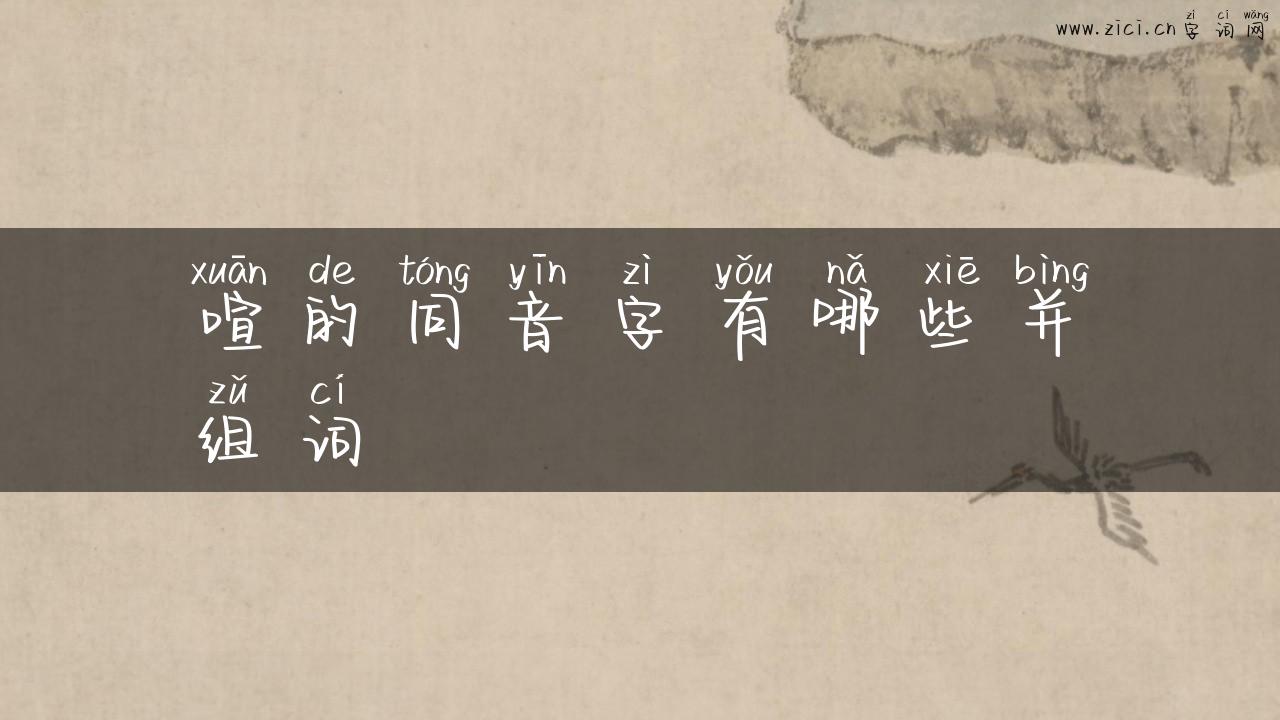 zì cí wǎng
www.zici.cn 字词网
xuān de tóng yīn zì yǒu nǎ xiē bìng
喧的同音字有哪些并
zǔ cí
组词